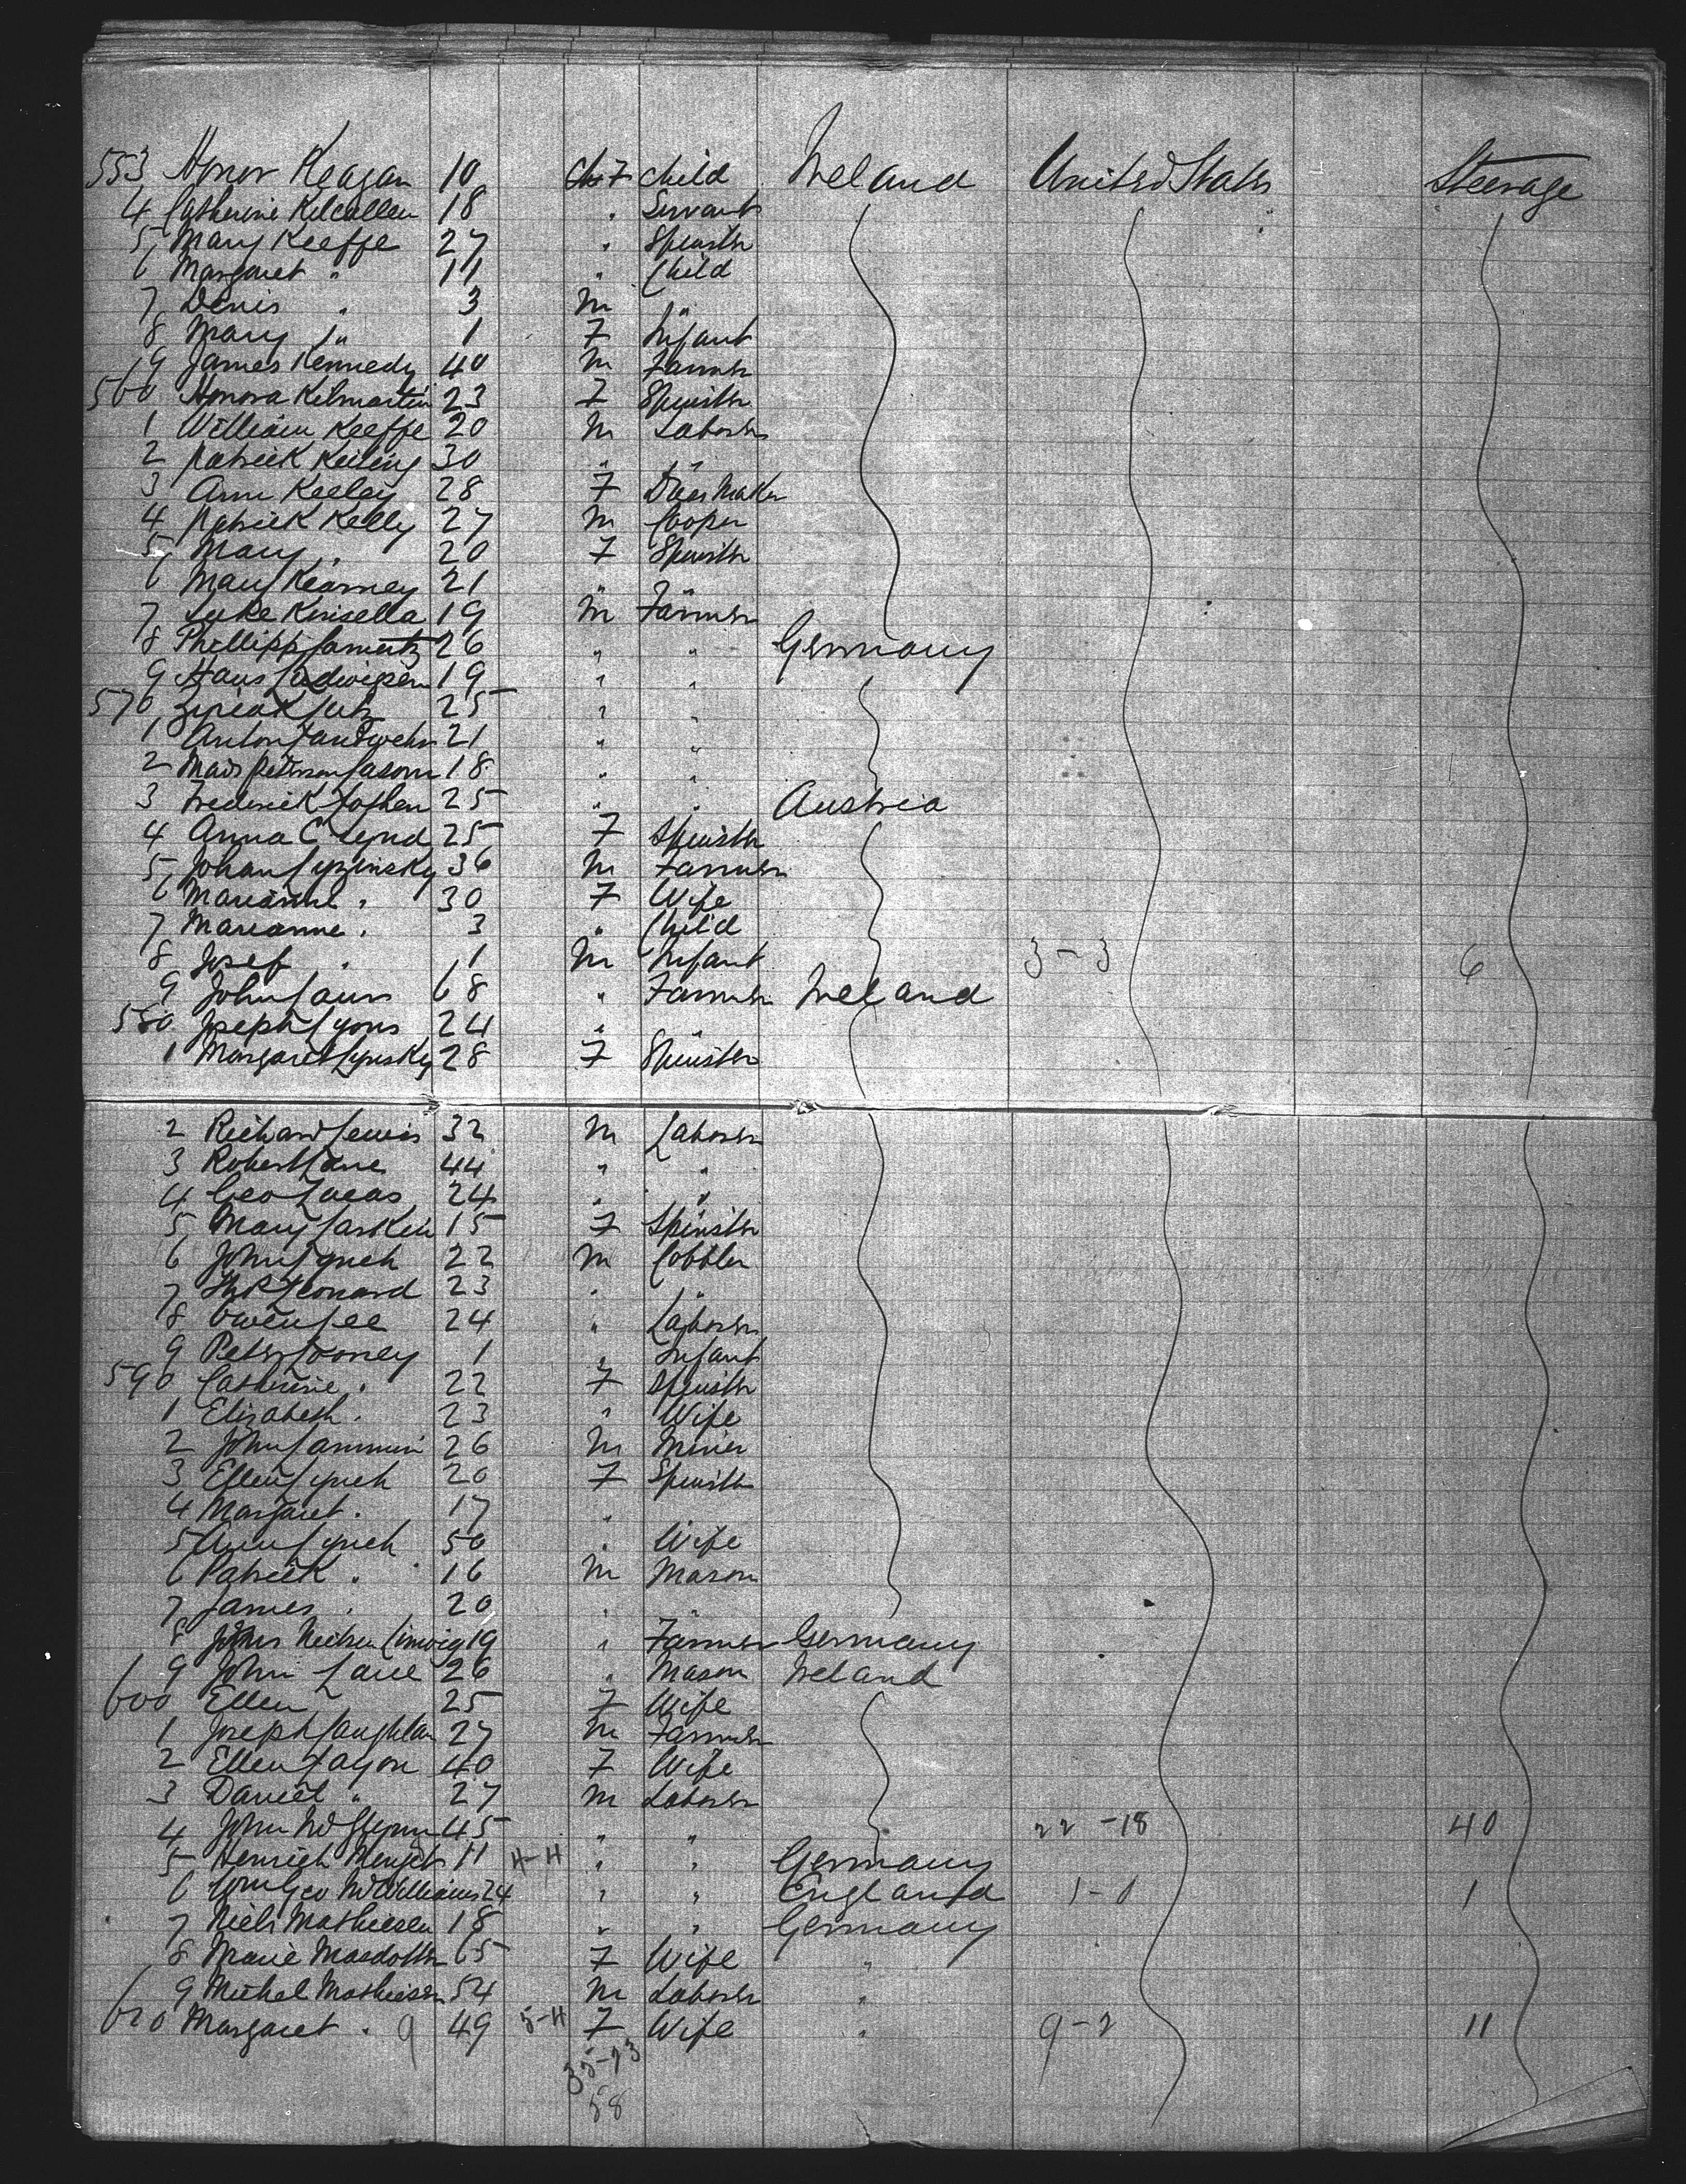 553 Honor Keagan 10 ch F child Ireland United States Steerage
4 Catherine Kilcullen 18 " Servant
5 Mary Keeffe 27 " Spinster
6 Margaret " 11 " Child
7 Denis " 3 M "
8 Mary " 1 F Infant
9 James Kennedy 40 M Farmer
560 Honora Kilmartin 23 F Spinster
1 William Keeffe 20 M Laborer
2 Patrick 30 " "
3 Ann Keeley 28 F Dress Maker
4 Patrick Kelly 27 M Cooper
5 Mary " 20 F Spinster
6 Mary Kearney 21 " "
7 Luke Kinsella 19 M Farmer
8 Phillipp 26 " " Germany
9 Hans Ludwigsen 19 " "
570 25 " "
1 Anton Landwehr 21 " "
2 Mads Peterson 18 " "
3 Frederick 25 " " Austria
4 Anna C Lynd 25 F Spinster
5 Johan Lyzinsky 36 M Farmer
6 Marianne " 30 F Wife
7 Marianne " 3 " Child
8 Josef " 1 M Infant 3-3 6
9 John 68 " Farmer Ireland
580 Joseph Lyons 24 " "
1 Margaret Lynsky 28 F Spinster
2 Richard Lewis 32 M Laborer
3 Robert Lane 44 " "
4 Geo Lucas 24 " "
5 Mary Larkin 15 F Spinster
6 John Lynch 22 M Cobbler
7 Thos Leonard 23 " "
8 Owen Lee 24 " Laborer
9 Peter Looney 1 " Infant
590 Catherine " 22 F Spinster
1 Elizabeth " 23 " Wife
2 John 26 M Miner
3 Ellen Lynch 20 F Spinster
4 Margaret " 17 "
5 Ann Lynch 50 " Wife
6 Patrick " 16 M Mason
7 James " 20 " "
8 Neilsen 19 " Farmer Germany
9 John Lane 26 " Mason Ireland
600 Ellen 25 F Wife
1 Joseph Laughlan 27 M Farmer
2 Ellen 40 F Wife
3 Daniel " 27 M Laborer
4 John McGlynn 45 " " 22-18 40
5 Henrich 11 H-H " " Germany
6 Wm Geo McWilliams 24 " " England 1-0 1
7 Niels Mathiesen 18 " " Germany
8 Marie 65 F Wife "
9 Michel Mathiesen 54 M Laborer "
610 Margaret " 9 49 5-H F Wife " 9-2 11
35-23
58